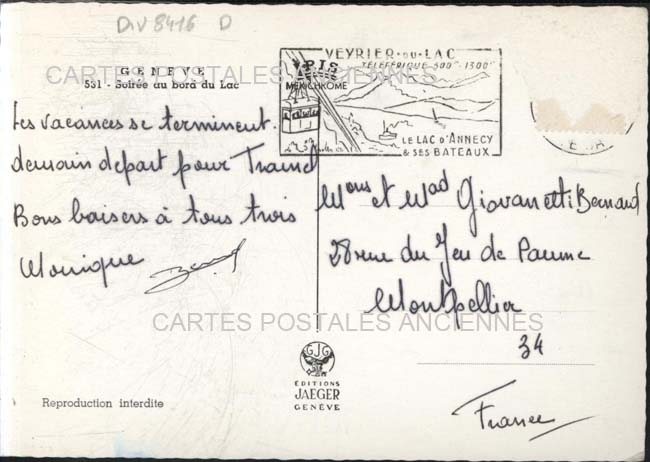 Div 8416 D
GENEVE
531 - Soirée au bord du Lac
IRIS
MEXICHROME
VEYRIER-DU-LAC
TÉLÉFÉRIQUE 500m-1300m
LE LAC D'ANNECY
& SES BATEAUX
CARTES POSTALES ANCIENNES
Les vacances se terminent.
demain départ pour
Bons baisers à tous trois
Monique
Mons et Mad Giovanetti Bernard
28 rue du Jeu de Paume
Montpellier
34
France
CARTES POSTALES ANCIENNES
GJG
ÉDITIONS
JAEGER
GENÈVE
Reproduction interdite